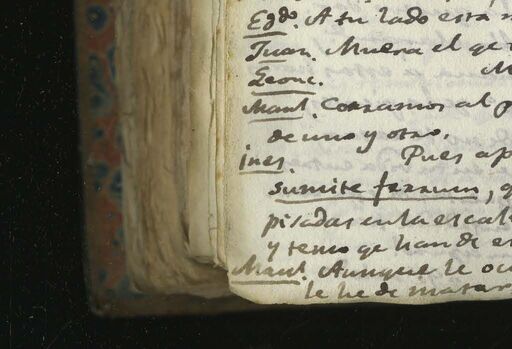 Egdo. A su lado está
Juan. Muera el ge
Leonc. M
Manl. Corramos al p
de uno y otro.
ines. Pues ap
sumite ferrum, q
pisadas en la escal
y temo qe han de es
Manl. Aunque le oc
le he de matar